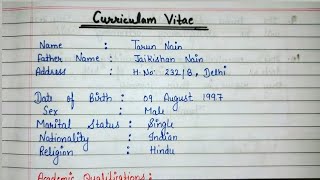 Curriculam Vitae
Name : Tarun Nain
Father Name : Jaikishan Nain
Address : H.No. 232/8, Delhi
Date of Birth : 09 August 1997
Sex : Male
Marital Status : Single
Nationality : Indian
Religion : Hindu
Academic Qualifications :